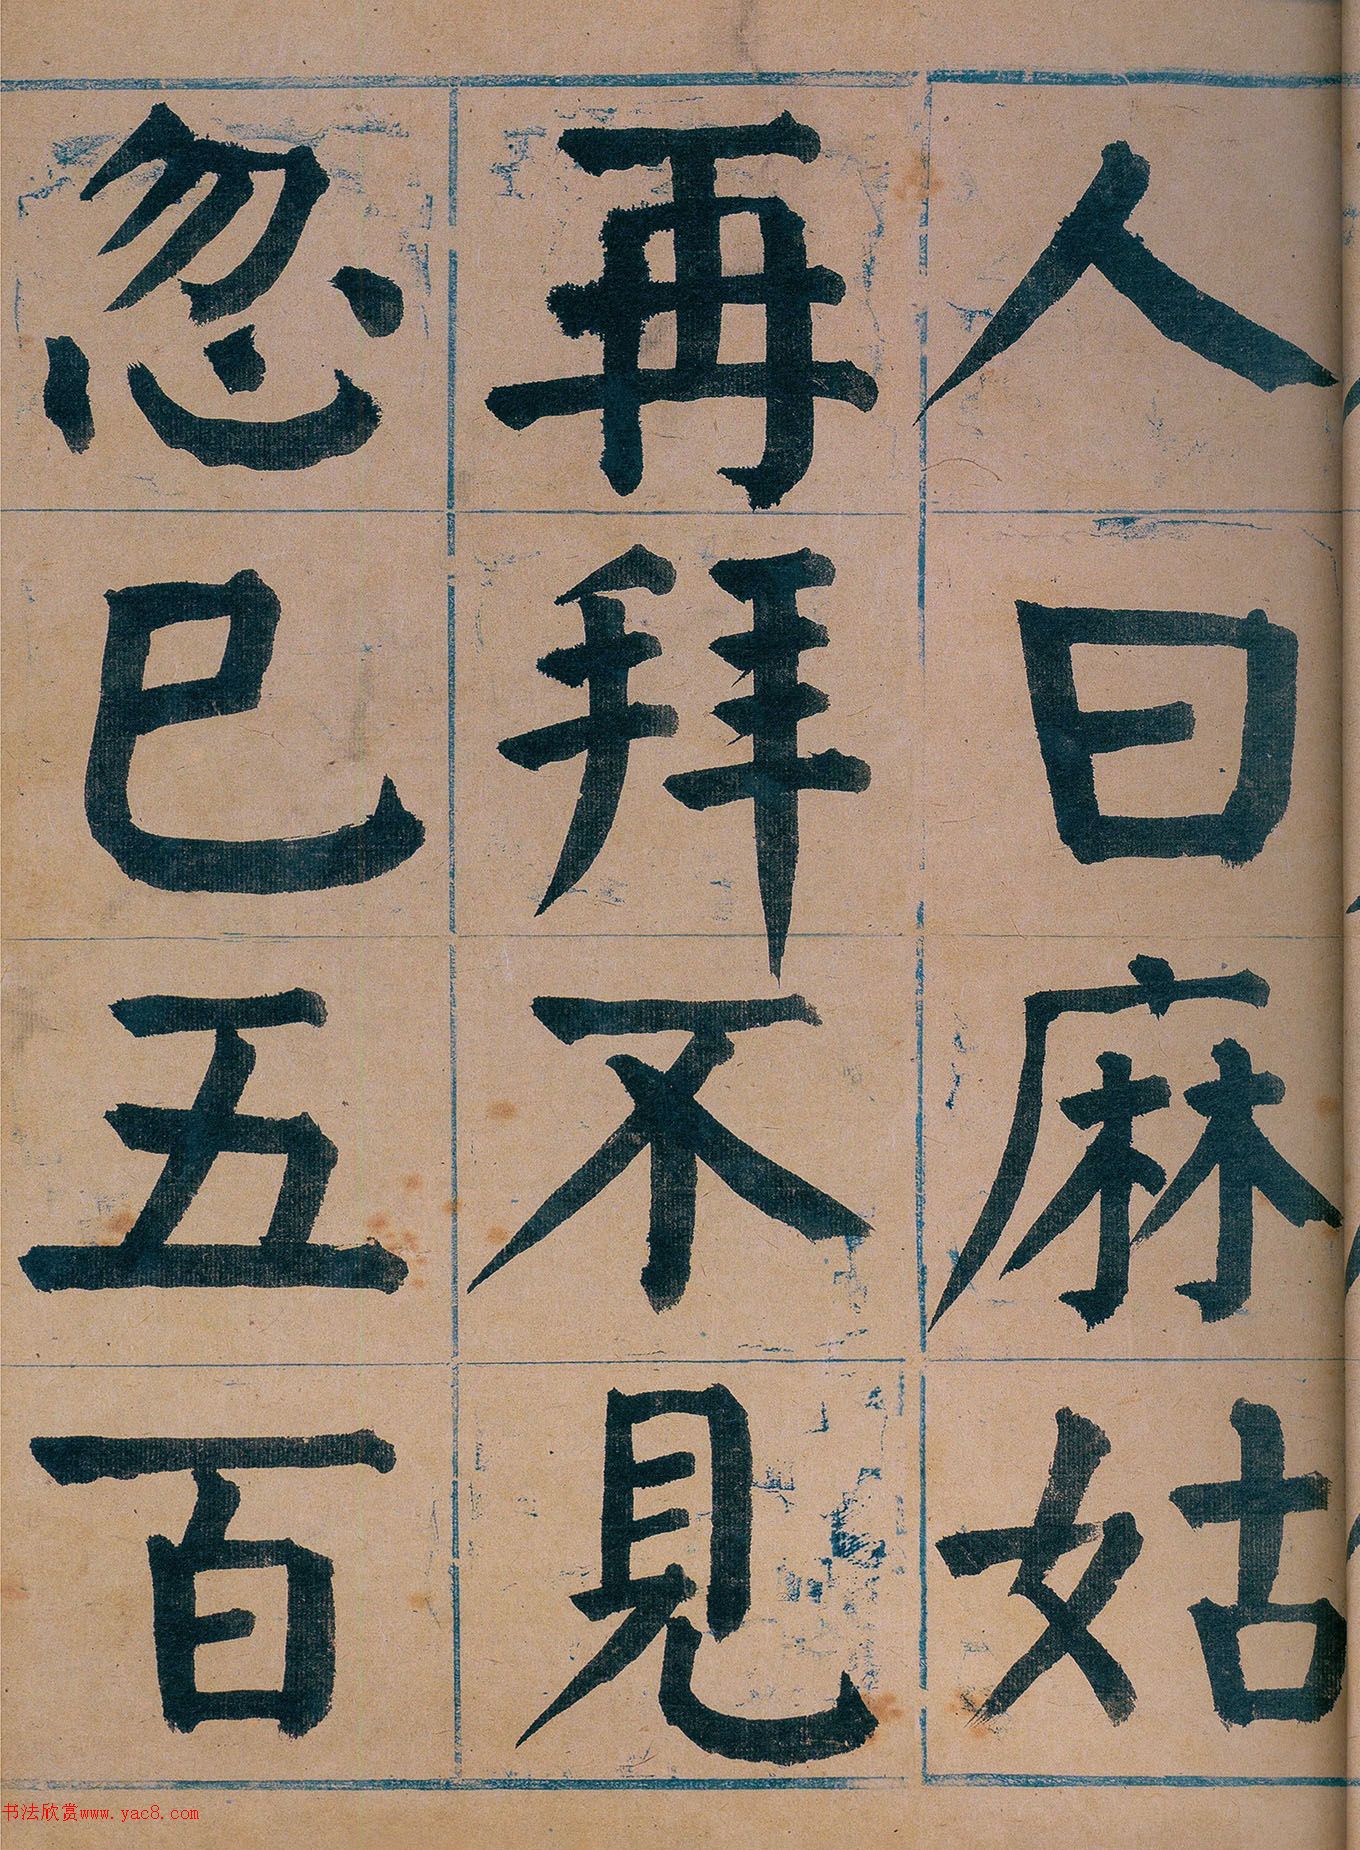 人曰麻姑
再拜不見
忽已五百
书法欣赏www.yac8.com